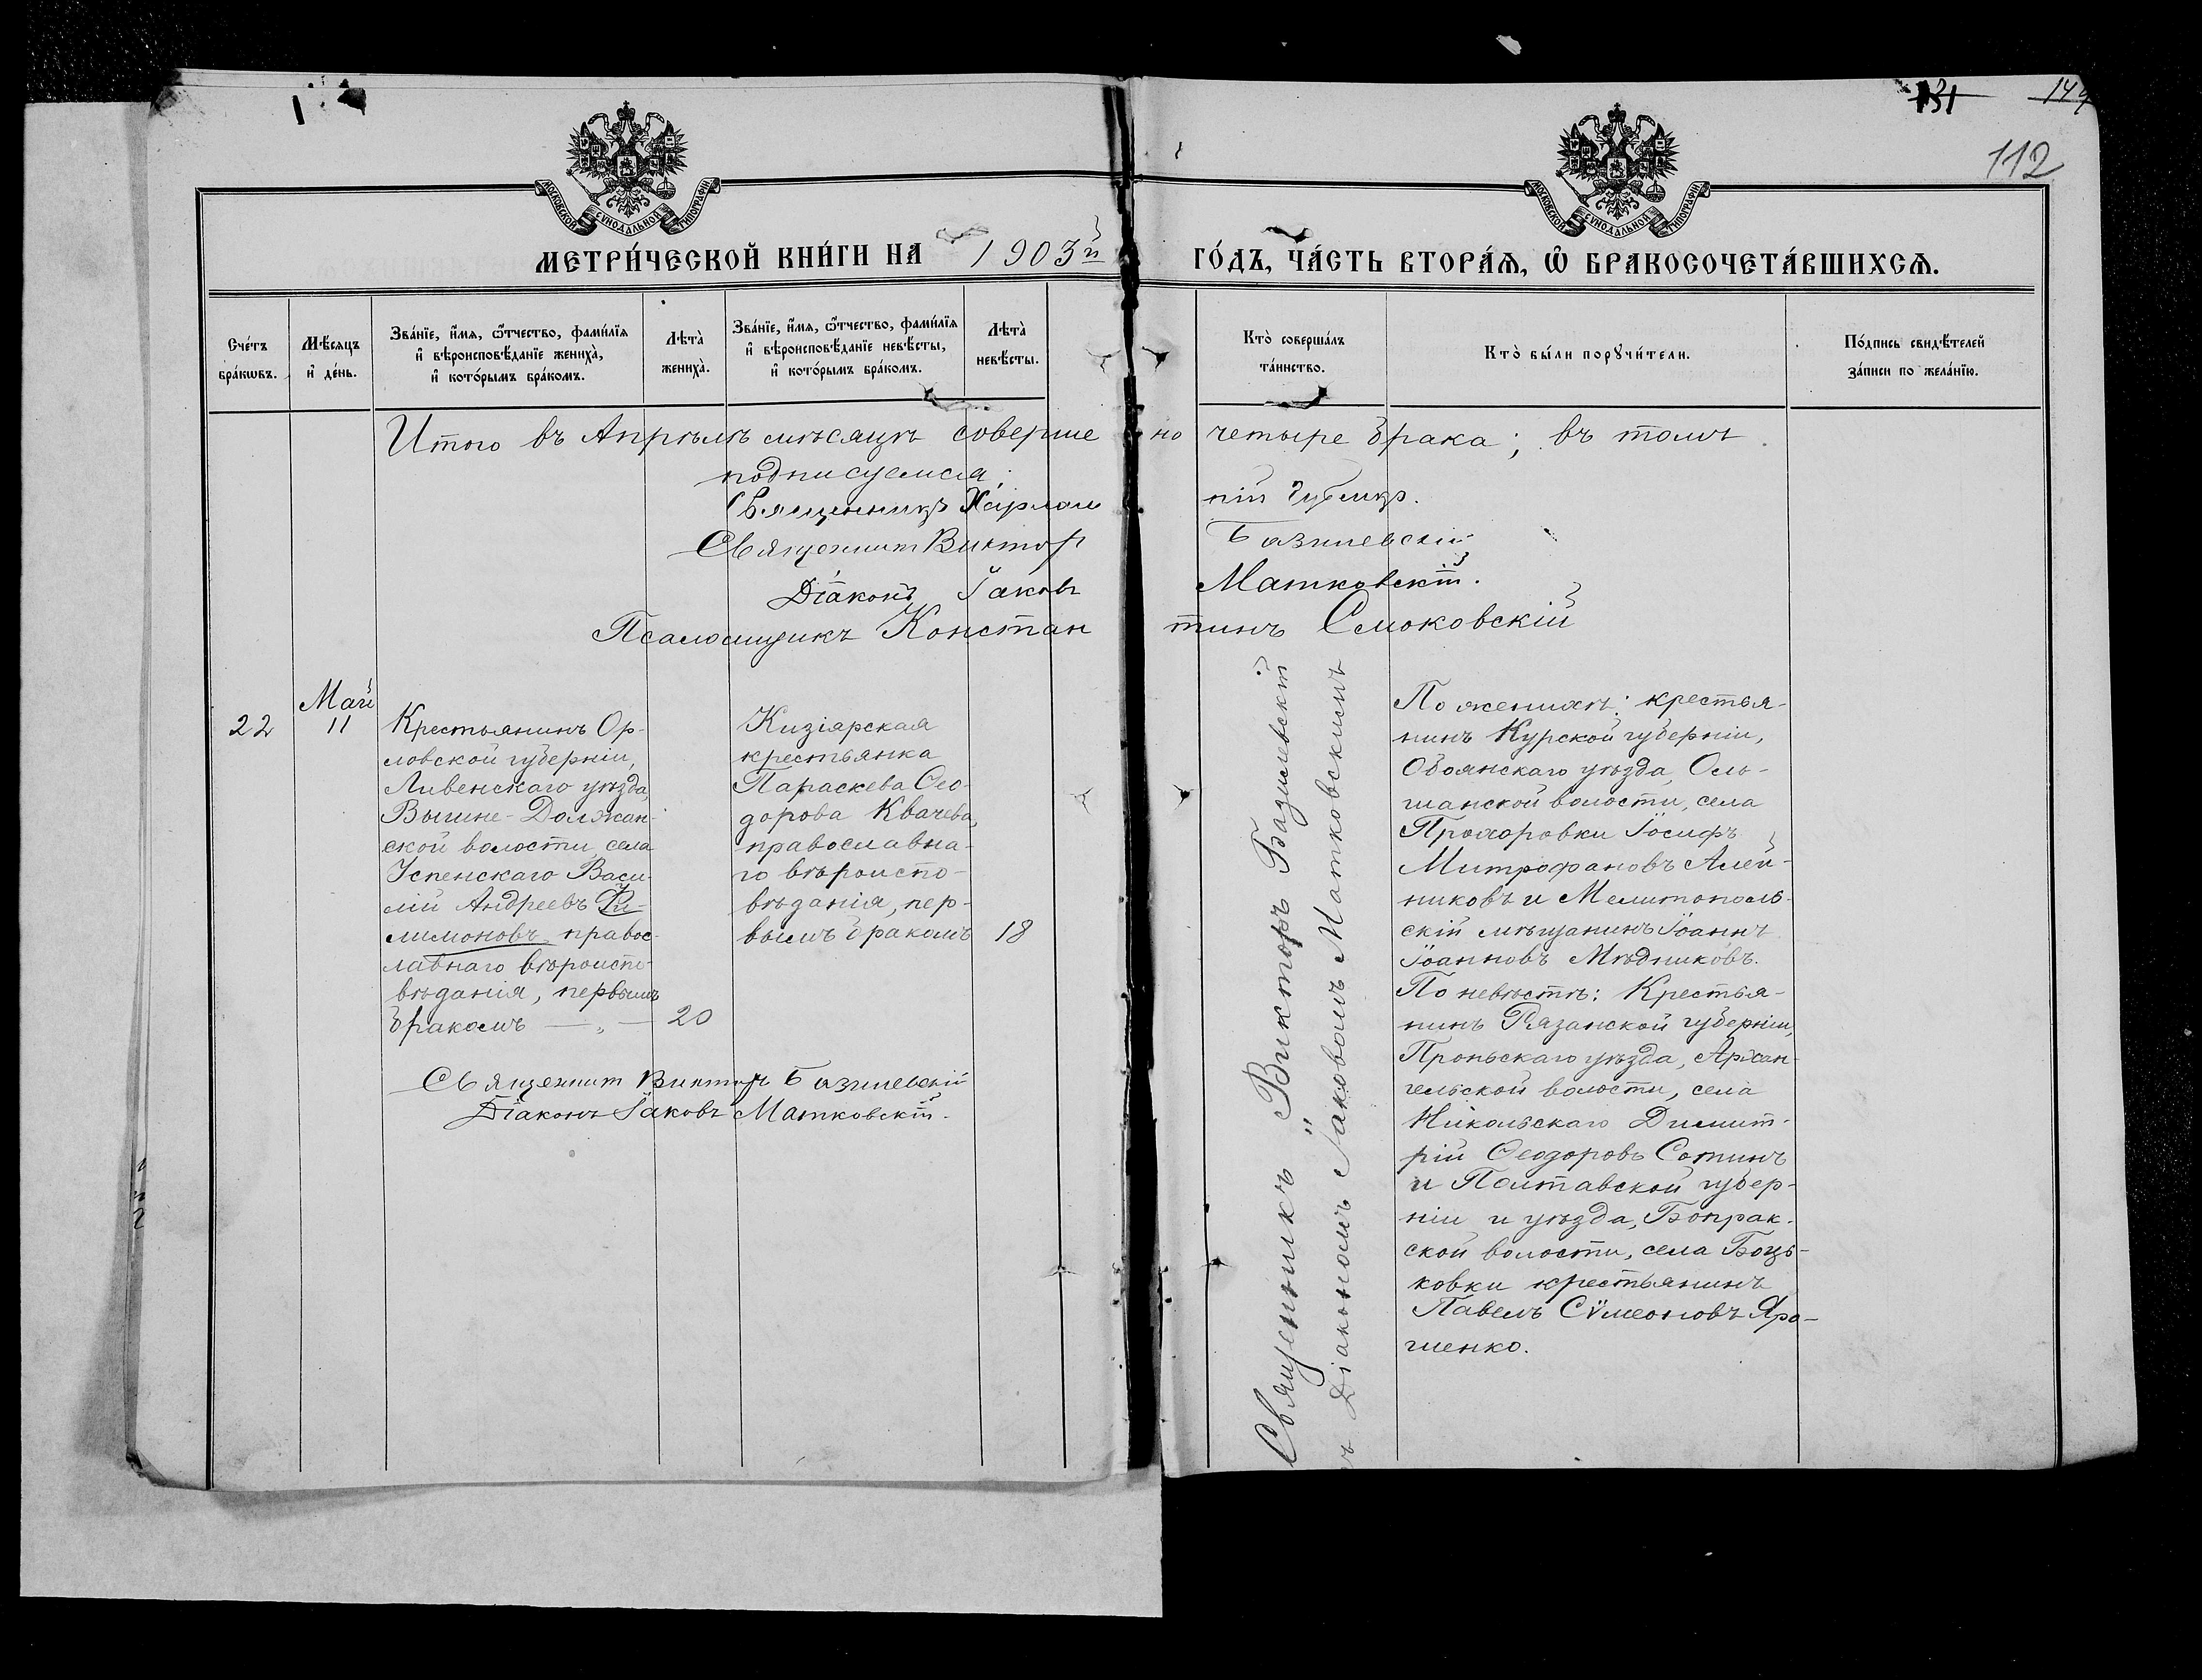 131 149
112
МОСКОВСКОЙ СУНОДАЛЬНОЙ ТИПОГРАФІИ
МОСКОВСКОЙ СУНОДАЛЬНОЙ ТИПОГРАФІИ
МЕТРИ́ЧЕСКОЙ КНИ́ГИ НА 1903й ГО́ДЪ, ЧА́СТЬ ВТОРА́Ѧ, Ѽ БРАКОСОЧЕТА́ВШИХСѦ.
Сче́тъ
бра́кѡвъ.
Мѣ́сяцъ
и҆ де́нь.
Зва́нїе, и҆́мѧ, ѻ҆́тчество, фами́лїѧ
и҆ вѣроисповѣ́данїе жениха̀,
и҆ кото́рымъ бра́комъ.
Лѣта̀
жениха̀.
Зва́нїе, и҆́мѧ, ѻ҆́тчество, фами́лїѧ
и҆ вѣроисповѣ́данїе невѣ́сты,
и҆ кото́рымъ бра́комъ.
Лѣта̀
невѣ́сты.
Кто̀ соверша́лъ
та́инство.
Кто̀ бы́ли порꙋчи́тели.
По́дпись свидѣ́телей
за́писи по жела́нїю.
Итого въ Апрѣлѣ мѣсяцѣ совершено четыре брака; въ томъ
подписуемся:
Священникъ Харлампій
Священникъ Викторъ Базилевскій
Діаконъ Іаковъ Матковскій.
Псаломщикъ Константинъ Смоковскій
22
Май
11
Крестьянинъ Ор-
ловской губерніи,
Ливенскаго уѣзда,
Вышне-Должан-
ской волости, села
Успенскаго Васи-
лій Андреевъ Фи-
лимоновъ, правос-
лавнаго вѣроиспо-
вѣданія, первымъ
бракомъ — „ —
20
Кизіярская
крестьянка
Параскева Ѳео-
дорова Квачева,
православна-
го вѣроиспо-
вѣданія, пер-
вымъ бракомъ
18
Священникъ Викторъ Базилевскій
Діаконъ Іаковъ Матковскій.
Священникъ Викторъ Базилевскій
съ Діакономъ Іаковомъ Матковскимъ
По женихѣ: крестья-
нинъ Курской губерніи,
Обоянскаго уѣзда, Оль-
шанской волости, села
Прохоровки Іосифъ
Митрофановъ Алей-
никовъ и Мелитополь-
скій мѣщанинъ Іоаннъ
Іоанновъ Мѣдниковъ.
По невѣстѣ: Крестья-
нинъ Рязанской губерніи,
Проньскаго уѣзда, Архан-
гельской волости, села
Никольскаго Димит-
рій Ѳеодоровъ Сотинъ
и Полтавской губер-
ніи и уѣзда,
ской волости, села Боць-
ковки крестьянинъ
Павелъ Сѵмеоновъ Яро-
шенко.